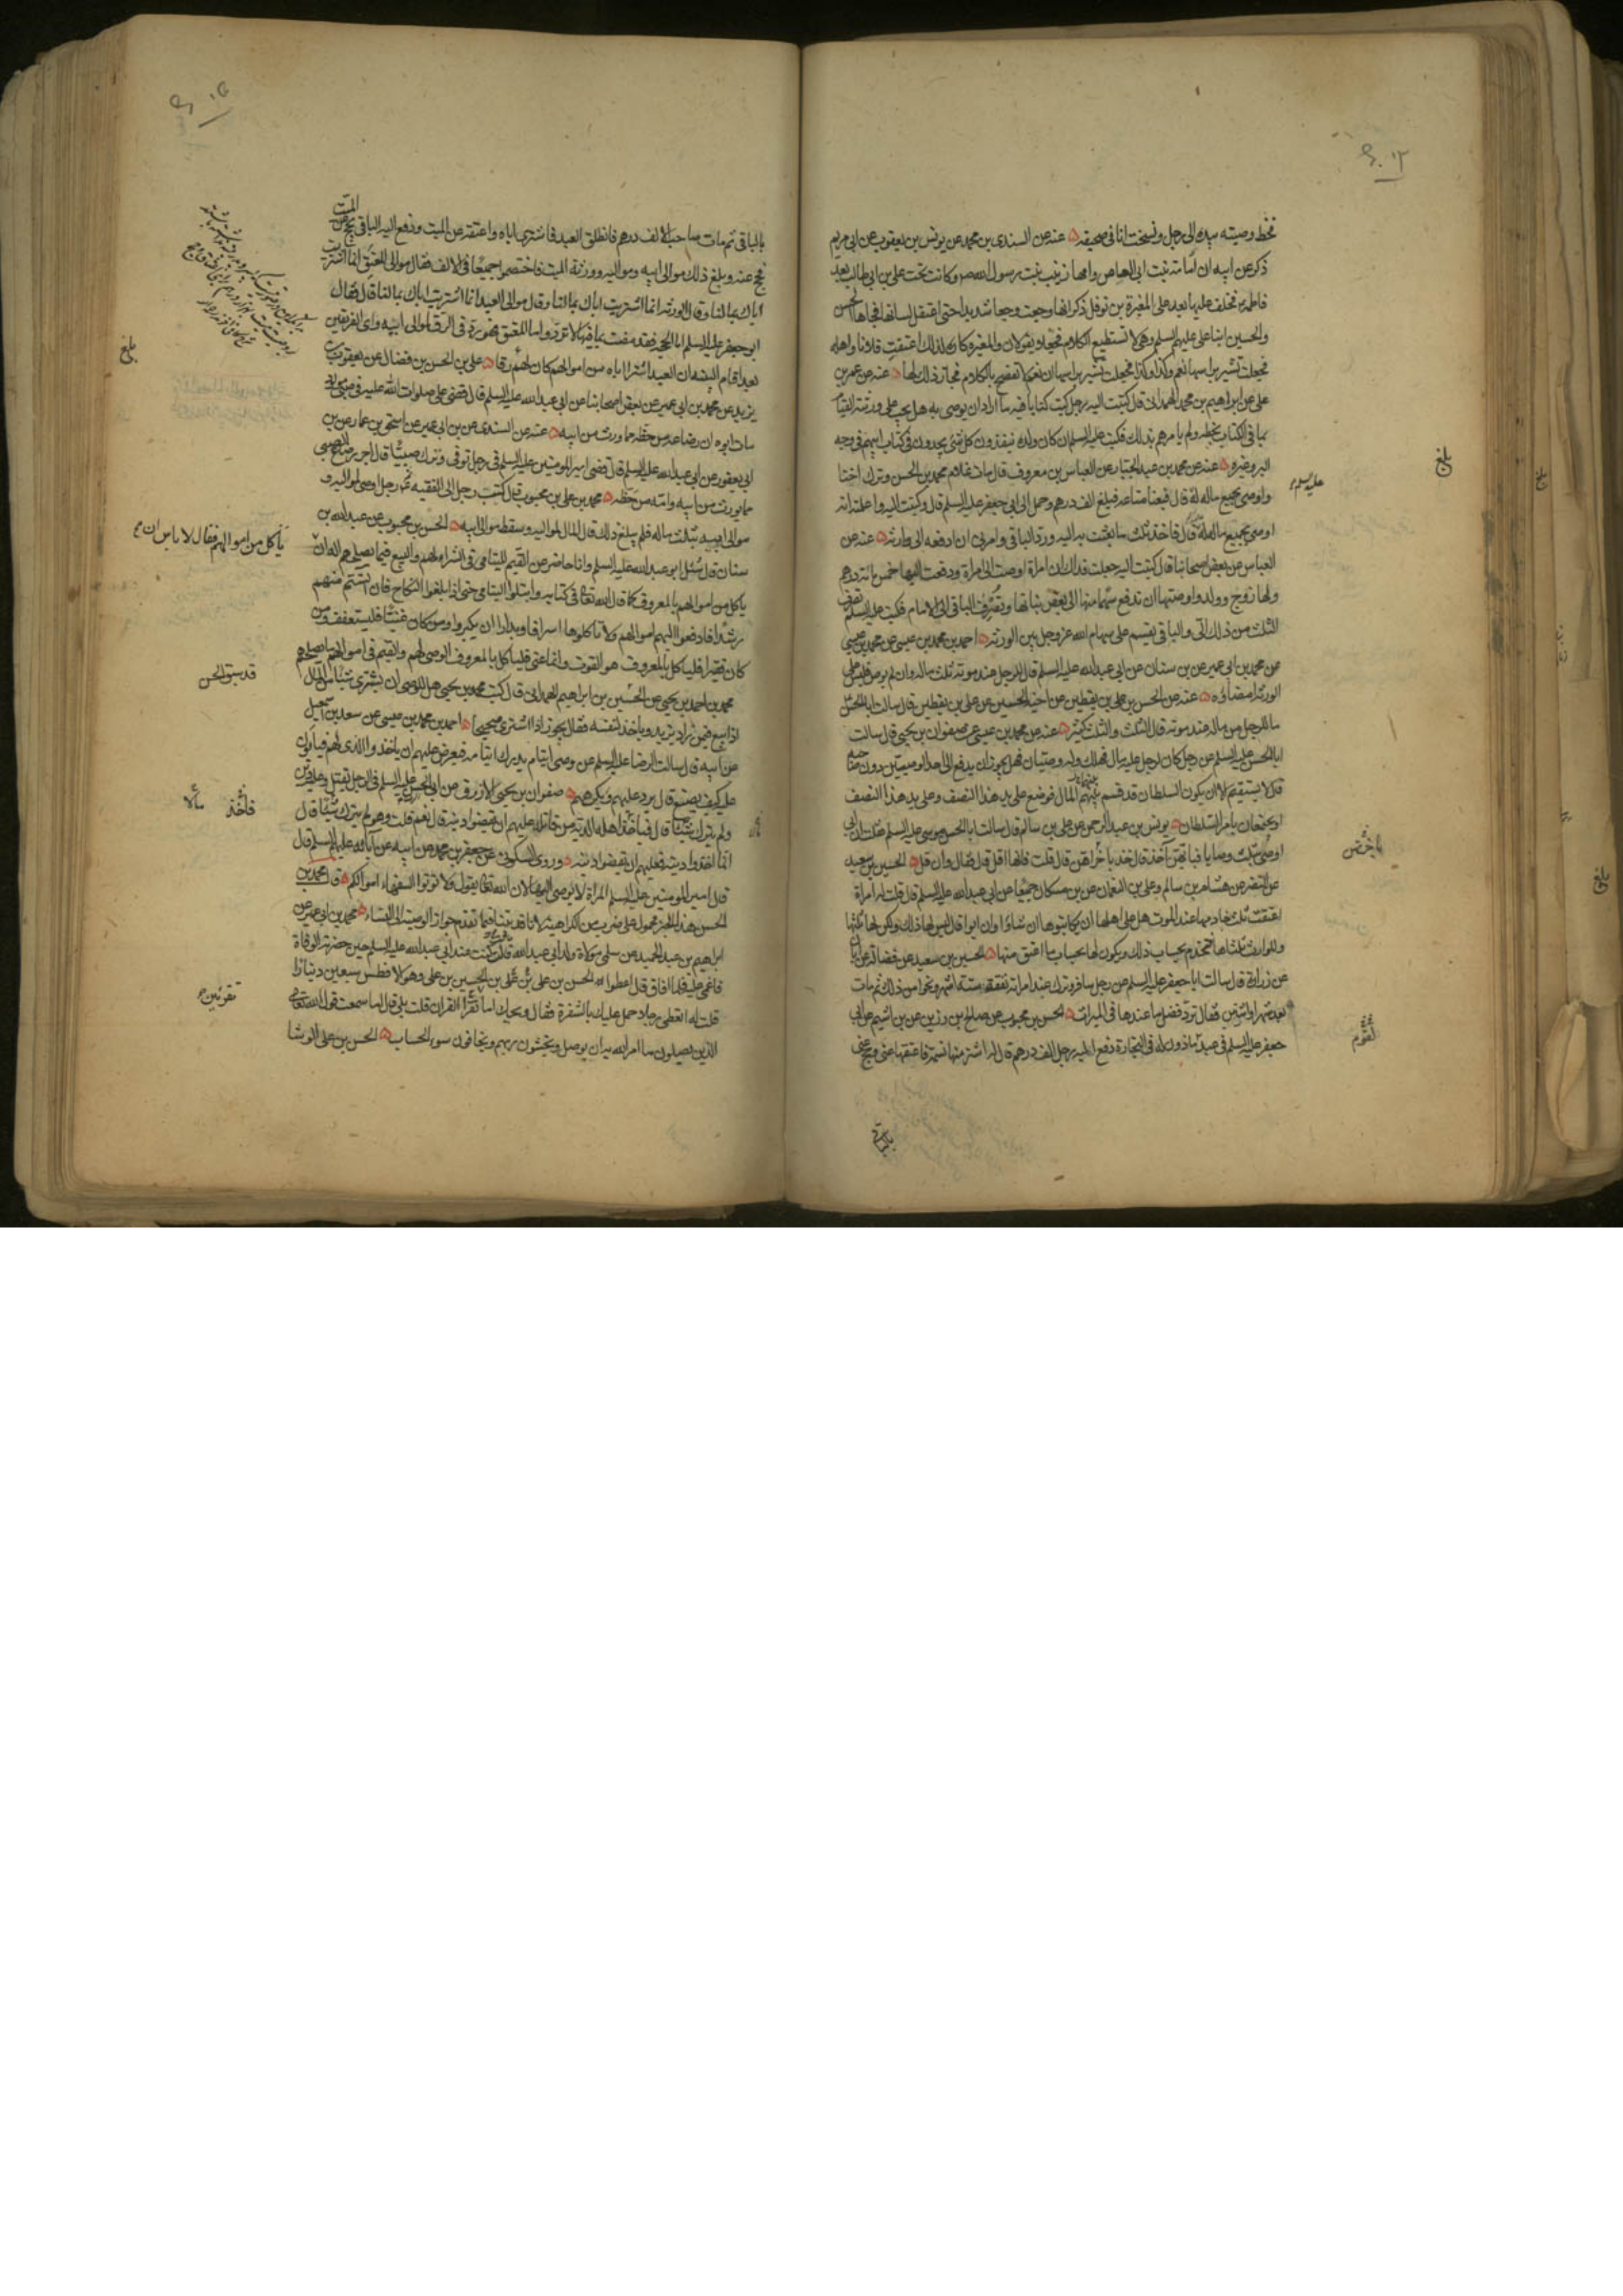 بخط وصيته بيده الى رجل ونسخت انا في صحيفة ه عنه عن السندي بن محمد عن يونس بن يعقوب عن ابي مريم
ذكره عن ابيه ان امامة بنت ابي العاص وامها زينب بنت رسول الله ص وكانت تحت علي بن ابي طالب بعد
فاطمة فخلف عليها بعد علي المغيرة بن نوفل ذكر انها وجعت وجعا شديدا حتى اعتقل لسانها فجاءها الحسن
والحسين ابنا علي عليهم السلم وهي لا تستطيع الكلام فجعلا يقولان والمغيرة كاره لذلك اعتقت فلانا واهله
فجعلت تشير براسها نعم وكذا وكذا فجعلت تشير براسها ان نعم لا تفصح بالكلام فجاز ذلك لها ه عنه عن عمر بن
علي عن ابراهيم بن محمد الهمداني قال كتبت اليه رجل كتب كتابا فيه ما اراد ان يوصي به هل يجب على ورثته القيام
بما في الكتاب بخطه ولم يامرهم بذلك فكتب عليه السلم ان كان ولده ينفذون كل شئ يجدون في كتاب ابيهم في وجه
البر وغيره ه عنه عن محمد بن عبد الجبار عن العباس بن معروف قال مات غلام محمد بن الحسن وترك اختا
واوصى بجميع ماله له قال فبعنا متاعه فبلغ الف درهم وحمل الى ابي جعفر عليه السلم قال وكتبت اليه واعلمته انه
اوصى بجميع ماله له قال فاخذ ثلث ما بعثت به اليه ورد الباقي وامرني ان ادفعه الى وارثه ه عنه عن
العباس عن بعض اصحابنا قال كتبت اليه جعلت فداك ان امراة اوصت الى امراة ودفعت اليها خمس مائة درهم
ولها زوج وولد واوصتها ان تدفع سهما منها الى بعض بناتها وتصرف الباقي الى الامام فكتب عليه السلم تصرف
الثلث من ذلك الي والباقي يقسم على سهام الله عز وجل بين الورثة ه احمد بن محمد بن عيسى عن محمد بن عيسى
عن محمد بن ابي عمير عن بن سنان عن ابي عبد الله عليه السلم قال للرجل عند موته ثلث ماله وان لم يوص فليس على
الورثة امضاؤه ه عنه عن الحسن بن علي بن يقطين عن اخيه الحسين عن علي بن يقطين قال سالت ابا الحسن
ما للرجل من ماله عند موته قال الثلث والثلث كثير ه عنه عن محمد بن عيسى عن صفوان بن يحيى قال سالت
ابا الحسن عليه السلم عن رجل كان لرجل عليه مال فهلك وله وصيان فهل يجوز ان يدفع الى احد الوصيين دون صاحبه
قال لا يستقيم الا ان يكون السلطان قد قسم بينهم المال فوضع على يد هذا النصف وعلى يد هذا النصف
او يجتمعان بامر السلطان ه يونس بن عبد الرحمن عن علي بن سالم قال سالت ابا الحسن موسى عليه السلم فقلت ان ابي
اوصى بثلث وصايا فبايهن آخذ قال خذ باخراهن قال قلت فانها اقل قال فقال وان قل ه الحسين بن سعيد
عن النضر عن هشام بن سالم وعلي بن النعمان عن بن مسكان جميعا عن ابي عبد الله عليه السلم قال قلت له امراة
اعتقت ثلث خادمها عند الموت هل على اهلها ان يكاتبوها ان شاؤا وان ابوا قال ليس لها ذلك ولكن لها ثلثها
وللوارث ثلثاها فتخدم بحساب ذلك ويكون لها بحساب ما اعتق منها ه الحسين بن سعيد عن فضالة عن ابان
عن زرارة قال سالت ابا جعفر عليه السلم عن رجل سافر وترك عند امراته نفقة ستة اشهر ونحوا من ذلك ثم مات
بعد شهر او اثنين فقال ترد فضل ما عندها في الميراث ه الحسن بن محبوب عن صالح بن رزين عن بن اشيم عن ابي
جعفر عليه السلم في عبد ماذون له في التجارة دفع اليه رجل الف درهم قال له اشتر منها نسمة فاعتقها عني وحج عني
بالباقي
عليه السلم
بلغ
بالباقي ثم مات صاحب الالف درهم فانطلق العبد فاشترى اباه واعتقه عن الميت ودفع اليه الباقي يحج عن الميت
فحج عنه وبلغ ذلك موالي ابيه ومواليه وورثة الميت فاختصموا جميعا في الالف فقال موالي المعتق انما اشتريت
اباك بمالنا وقال الورثة انما اشتريت اباك بمالنا وقال موالي العبد انما اشتريت اباك بمالنا قال فقال
ابو جعفر عليه السلم اما الحجة فقد مضت بما فيها لا ترد واما المعتق فهو رد في الرق لموالي ابيه واي الفريقين
بعد اقام البينة ان العبد اشترا اباه من اموالهم كان لهم رقا ه علي بن الحسن بن فضال عن يعقوب بن
يزيد عن محمد بن ابي عمير عن بعض اصحابنا عن ابي عبد الله عليه السلم قال قضى علي صلوات الله عليه في صبي
مات ابوه ان رضاعه من حظه مما ورث من ابيه ه عنه عن السندي عن بن ابي عمير عن اسحق بن عمار عن بن
ابي يعفور عن ابي عبد الله عليه السلم قال قضى امير المومنين عليه السلم في رجل توفي وترك صبيا قال اجر رضاع الصبي
مما يورث من ابيه وامه من حظه ه محمد بن علي بن محبوب قال كتب رجل الى الفقيه ع رجل اوصى لمواليه و
موالي ابيه بثلث ماله فلم يبلغ ذلك قال المال لمواليه وسقط موالي ابيه ه الحسن بن محبوب عن عبد الله بن
سنان قال سئل ابو عبد الله عليه السلم وانا حاضر عن القيم لليتامى في الشراء لهم والبيع فيما يصلحهم اله ان
ياكل من اموالهم بالمعروف كما قال الله تعالى في كتابه وابتلوا اليتامى حتى اذا بلغوا النكاح فان آنستم منهم
رشدا فادفعوا اليهم اموالهم ولا تاكلوها اسرافا وبدارا ان يكبروا ومن كان غنيا فليستعفف ومن
كان فقيرا فلياكل بالمعروف هو القوت وانما عنى فلياكل بالمعروف الوصي لهم والقيم في اموالهم ما يصلحهم
محمد بن احمد بن يحيى عن الحسين بن ابراهيم الهمداني قال كتب محمد بن يحيى هل للوصي ان يشتري شيئا من مال الميت
اذا بيع فيمن زاد يزيد وياخذ لنفسه فقال يجوز اذا اشترى صحيحا ه احمد بن محمد بن عيسى عن سعد بن اسمعيل
عن ابيه قال سالت الرضا عليه السلم عن وصي ايتام يدرك ايتامه فيعرض عليهم ان ياخذوا الذي لهم فيابون
عليه كيف يصنع قال يرد عليهم ويكرههم ه صفوان بن يحيى الازرق عن ابي الحسن عليه السلم في الرجل يقتل وعليه دين
ولم يترك شيئا قال فياخذ اهله الدية من قاتله عليهم ان يقضوا دينه قال نعم قلت وهو لم يترك شيئا قال
انما اخذوا ديته فعليهم ان يقضوا دينه ه وروى السكوني عن جعفر بن محمد عن ابيه عن آبائه عليهم السلم قال
قال امير المومنين عليه السلم المراة لا يوصى اليها لان الله تعالى يقول ولا تؤتوا السفهاء اموالكم ه قال محمد بن
الحسن هذا الخبر محمول على ضرب من الكراهية لانا قد بينا فيما تقدم جواز الوصية الى النساء ه محمد بن ابي عمير عن
ابراهيم بن عبد الحميد عن سلمى مولاة ولد ابي عبد الله قالت كنت عند ابي عبد الله عليه السلم حين حضرته الوفاة
فاغمي عليه فلما افاق قال اعطوا الحسن بن علي بن علي بن الحسين بن علي وهو الافطس سبعين دينارا
قلت له اتعطي رجلا حمل عليك بالشفرة فقال ويحك اما تقرا القران قلت بلى قال اما سمعت قول الله تعالى
الذين يصلون ما امر الله به ان يوصل ويخشون ربهم ويخافون سوء الحساب ه الحسن بن علي الوشا
بلغ
ياكل من اموالهم فقال لا باس ان